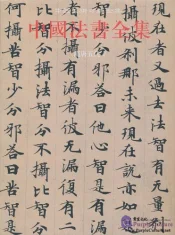 中國法書全集
現在者又過去法智有無量
攝彼刹那未來現在說亦如
智分邪答曰他心智是有
者攝有漏者彼無漏復有
智分攝法智分不攝比智
何攝苦智少分邪答曰苦智
Purple Cloud